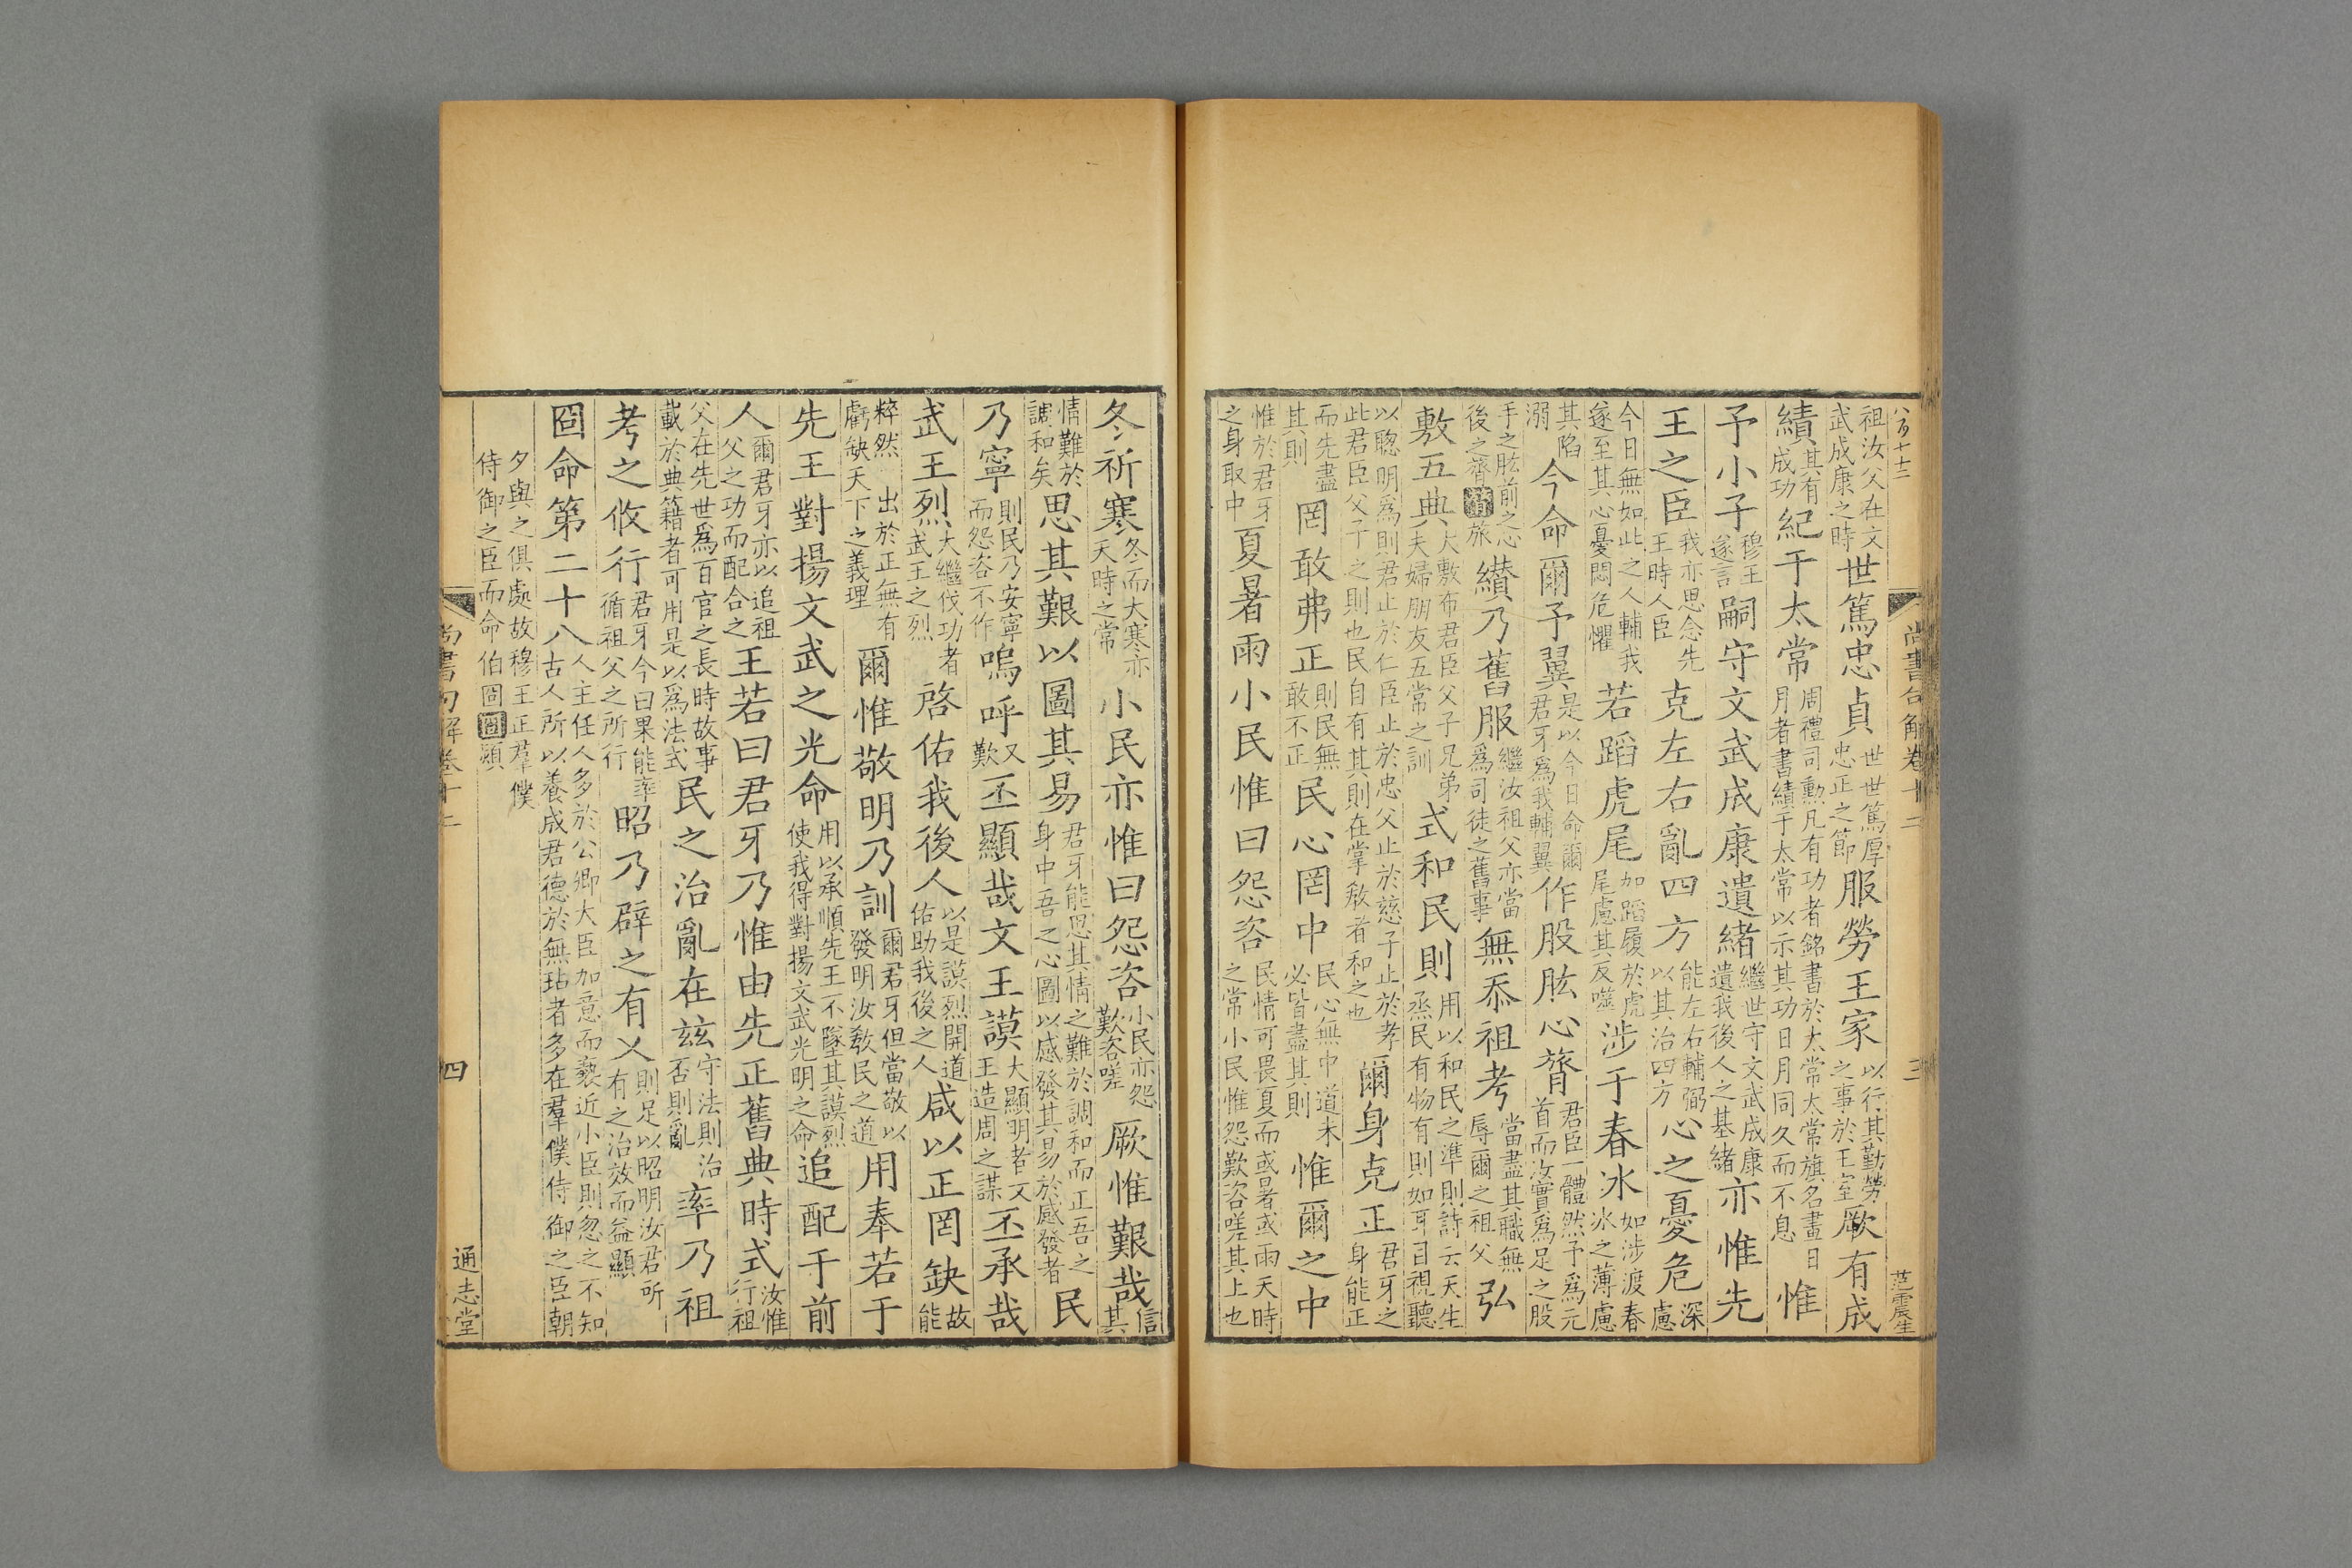 尚書句解卷十二 三 范震生
祖汝父在文武成康之時世篤忠貞世世篤厚忠正之節服勞王家以行其勤勞之事於王室厥有成
績其有成功紀于太常周禮司勳凡有功者銘書於太常太常旗名畫日月者書績于太常以示其功日月同久而不息惟
予小子穆王遂言嗣守文武成康遺緒繼世守文武成康遺我後人之基緒亦惟先
王之臣我亦思念先王時人臣克左右亂四方能左右輔弼以其治四方心之憂危深慮
今日無如此之人輔我遂至其心憂悶危懼若蹈虎尾如蹈履於虎尾慮其反噬涉于春冰如涉渡春冰之薄慮
其陷溺今命爾予翼是以今日命爾君牙爲我輔翼作股肱心膂君臣一體然予爲元首而汝實爲足之股
手之肱前之心後之膂膂旅纘乃舊服繼汝祖父亦當爲司徒之舊事無忝祖考當盡其職無辱爾之祖父弘
敷五典大敷布君臣父子兄弟夫婦朋友五常之訓式和民則用以和民之準則詩云天生烝民有物有則如耳目視聽
以聰明爲則君止於仁臣止於忠父止於慈子止於孝此君臣父子之則也民自有其則在掌敎者和之也爾身克正君牙之身能正
而先盡其則罔敢弗正則民無敢不正民心罔中民心無中道未必皆盡其則惟爾之中
惟於君牙之身取中夏暑雨小民惟曰怨咨民情可畏夏而或暑或雨天時之常小民惟怨歎咨嗟其上也
冬祈寒冬而大寒亦天時之常小民亦惟曰怨咨小民亦怨歎咨嗟厥惟艱哉信其
情難於調和矣思其艱以圖其易君牙能思其情之難於調和而正吾之身中吾之心圖以感發其易於感發者民
乃寧則民乃安寧而怨咨不作嗚呼又歎丕顯哉文王謨大顯明者文王造周之謀丕承哉
武王烈大繼伐功者武王之烈啓佑我後人以是謨烈開道佑助我後之人咸以正罔缺故能
粹然出於正無有虧缺天下之義理爾惟敬明乃訓爾君牙但當敬以發明汝敎民之道用奉若于
先王對揚文武之光命用以承順先王不墜其謨烈使我得對揚文武光明之命追配于前
人爾君牙亦以追祖父之功而配合之王若曰君牙乃惟由先正舊典時式汝惟行祖
父在先世爲百官之長時故事載於典籍者可用是以爲法式民之治亂在玆守法則治否則亂率乃祖
考之攸行君牙今日果能率循祖父之所行昭乃辟之有乂則足以昭明汝君所有之治效而益顯
冏命第二十八人主任人多於公卿大臣加意而褻近小臣則忽之不知古人所以養成君德於無玷者多在羣僕侍御之臣朝
夕與之俱處故穆王正羣僕侍御之臣而命伯冏冏熲
尚書句解卷十二 四 通志堂